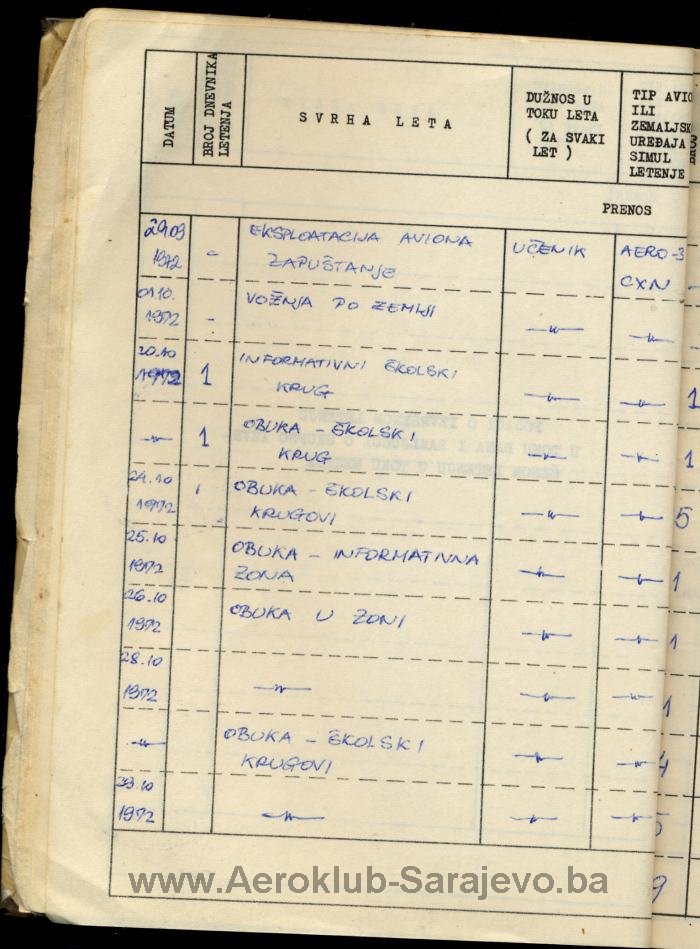 DATUM
BROJ DNEVNIKA
LETENJA
SVRHA LETA
DUŽNOS U
TOKU LETA
( ZA SVAKI
LET )
TIP AVIO
ILI
ZEMALJSK
UREĐAJA
SIMUL
LETENJE
PRENOS
29.09
1972
-
EKSPLOATACIJA AVIONA
ZAPUŠTANJE
UČENIK
AERO-3
CXN
01.10.
1972
-
VOŽNJA PO ZEMLJI
-"-
-"-
20.10
1972
1
INFORMATIVNI ŠKOLSKI
KRUG
-"-
-"-
1
-"-
1
OBUKA - ŠKOLSKI
KRUG
-"-
-"-
1
24.10
1972
OBUKA - ŠKOLSKI
KRUGOVI
-"-
-"-
5
25.10
1972
OBUKA - INFORMATIVNA
ZONA
-"-
-"-
1
26.10
1972
OBUKA U ZONI
-"-
-"-
1
28.10
1972
-"-
-"-
-"-
1
-"-
OBUKA - ŠKOLSKI
KRUGOVI
-"-
-"-
4
1972
-"-
-"-
-"-
5
9
www.Aeroklub-Sarajevo.ba